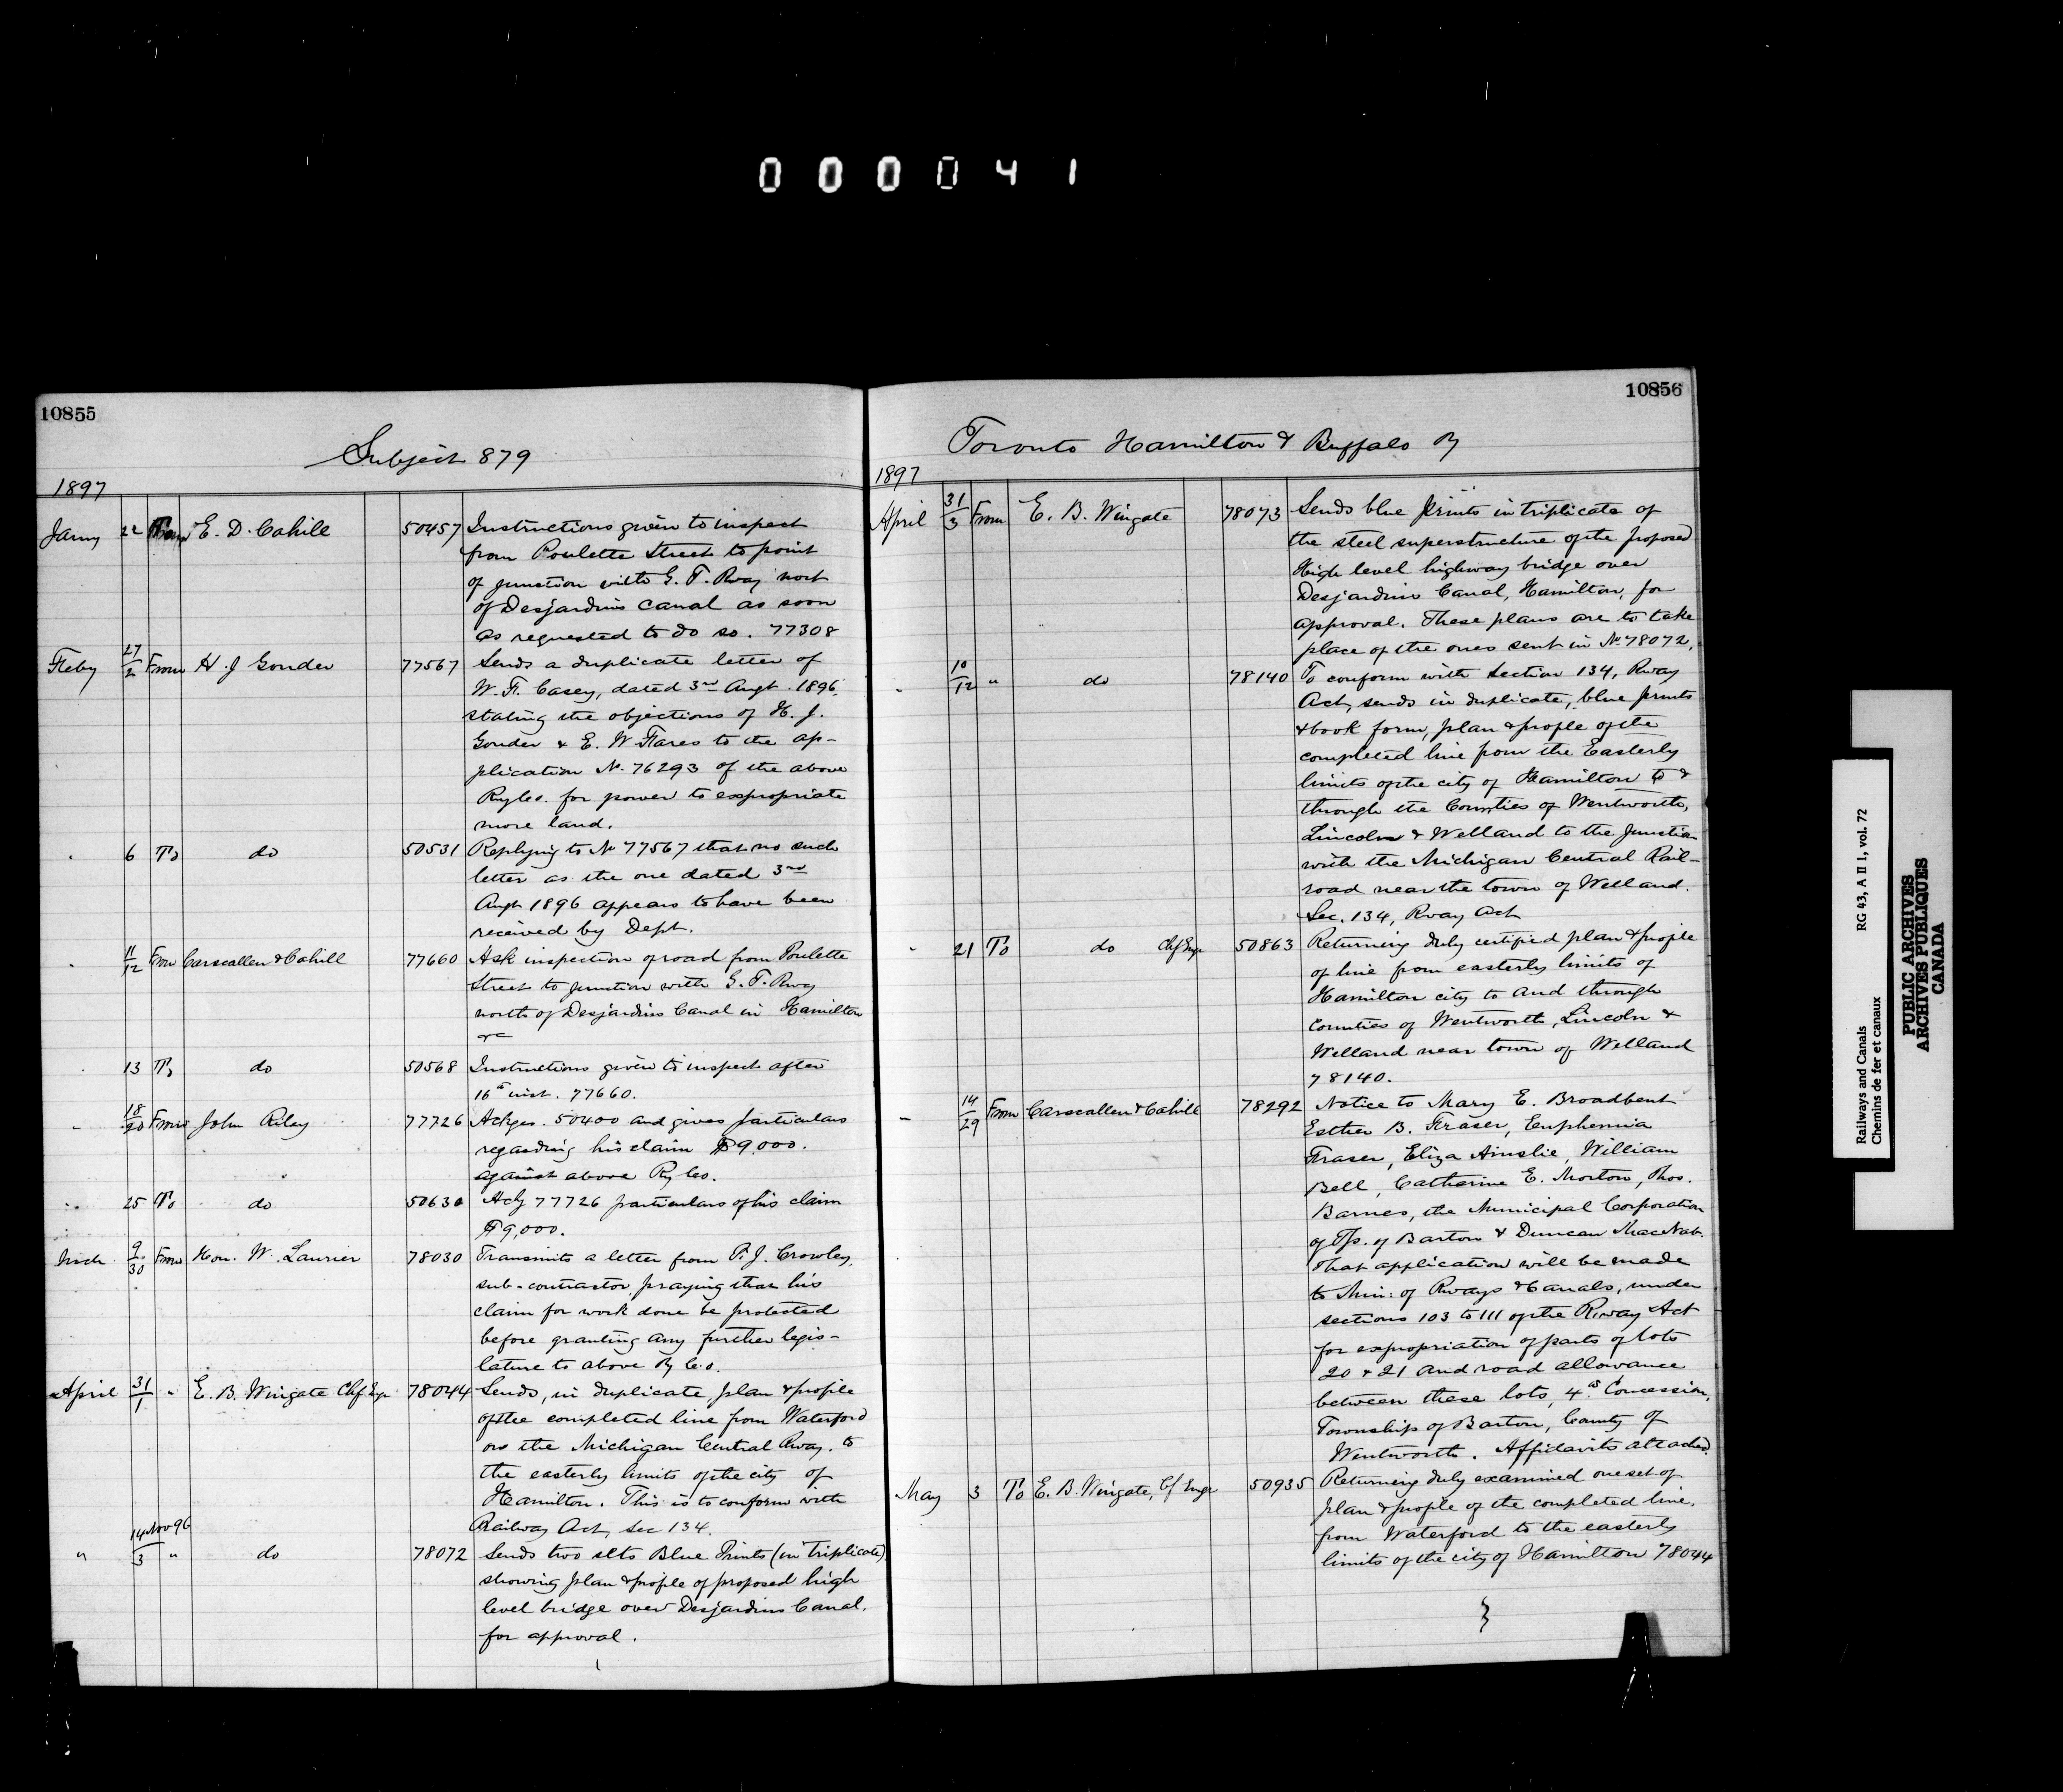 000041
10855
Subject 879
1897
Jany 22 From E. D. Cahill 50457 Instructions given to inspect
from Poulette Street to point
of junction with G. T. Rway nort
of Desjardins Canal as soon
as requested to do so. 77308
Feby 27/2 From H. J Gonder 77567 Sends a duplicate letter of
W. F. Casey, dated 3rd Augt. 1896,
stating the objections of H. J.
Gonder & E. W. Hares to the ap-
plication No. 76293 of the above
Ry Co. for power to expropriate
more land.
" 6 To do 50531 Replying to No 77567 that no such
letter as the one dated 3rd
Augt 1896 appears to have been
received by Dept.
" 11/12 From Carscallen & Cahill 77660 Ask inspection of road from Poulette
Street to junction with G. T. Rway
north of Desjardins Canal in Hamilton
&c
13 To do 50568 Instructions given to inspect after
16th inst. 77660.
" 18/20 From John Riley 77726 Ackges. 50400 and gives particulars
regarding his claim $9,000.
against above Ry Co.
" 25 To do 50630 Ackg 77726 particulars of his claim
$9,000.
Mch 9/30 From Hon. W. Laurier 78030 Transmits a letter from P. J. Crowley,
sub-contractor, praying that his
claim for work done be protected
before granting any further legis-
lature to above Ry Co.
April 31/1 " E. B. Wingate Chf Engr 78044 Sends, in duplicate, plan & profile
of the completed line from Waterford
on the Michigan Central Rway. to
the easterly limits of the city of
Hamilton. This is to conform with
Railway Act, Sec 134.
" 14 Nov 96/3 " do 78072 Sends two sets Blue Prints (in triplicate)
showing plan & profile of proposed high
level bridge over Desjardins Canal.
for approval.
10856
Toronto Hamilton & Buffalo Ry
1897
April 31/3 From E. B. Wingate 78073 Sends blue prints in triplicate of
the steel superstructure of the proposed
High level highway bridge over
Desjardins Canal, Hamilton, for
approval. These plans are to take
place of the ones sent in No 78072.
" 10/12 " do 78140 To conform with Section 134, Rway
Act, sends in duplicate, blue prints
& book form, plan & profile of the
completed line from the Easterly
limits of the city of Hamilton to &
through the Counties of Wentworth,
Lincoln & Welland to the junction
with the Michigan Central Rail-
road near the town of Welland.
Sec. 134, Rway Act
" 21 To do Chf Engr 50863 Returning duly certified plan & profile
of line from easterly limits of
Hamilton city to and through
Counties of Wentworth, Lincoln &
Welland near town of Welland
78140.
" 14/29 From Carscallen & Cahill 78292 Notice to Mary E. Broadbent
Esther B. Fraser, Euphemia
Fraser, Eliza Ainslie, William
Bell, Catharine E. Morton, Thos.
Barnes, the Municipal Corporation
of Tp. of Barton & Duncan MacNab.
that application will be made
to Min: of Rways & Canals, under
sections 103 to 111 of the Rway Act
for expropriation of parts of lots
20 & 21 and road allowance
between these lots, 4th Concession,
Township of Barton, County of
Wentworth. Affidavits attached.
May 3 To E. B. Wingate, Cf Engr 50935 Returning duly examined one set of
plan & profile of the completed line,
from Waterford to the easterly
limits of the city of Hamilton 78044
Railways and Canals RG 43, A II 1, vol. 72
Chemins de fer et canaux
PUBLIC ARCHIVES
ARCHIVES PUBLIQUES
CANADA